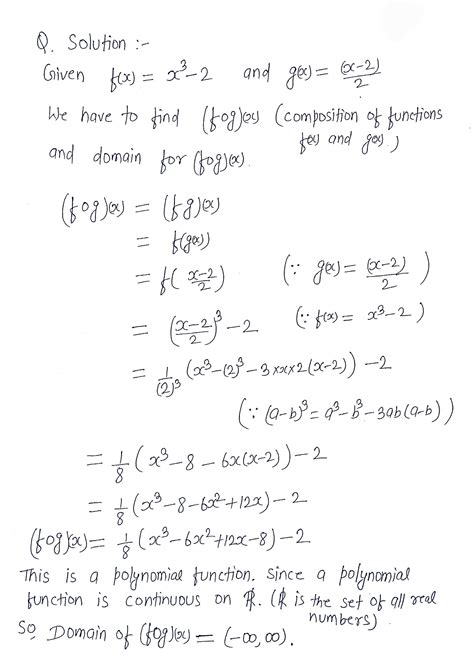 Q. Solution :-
Given f(x) = x³-2 and g(x) = (x-2)/2
We have to find (fog)(x) (composition of functions
f(x) and g(x).)
and domain for (fog)(x).
(fog)(x) = (fg)(x)
= f(g(x))
= f( (x-2)/2 ) (∵ g(x) = (x-2)/2 )
= ((x-2)/2)³ - 2 (∵ f(x) = x³-2 )
= 1/(2)³ (x³-(2)³-3×x×2(x-2)) -2
(∵ (a-b)³ = a³-b³-3ab(a-b))
= 1/8 (x³-8-6x(x-2))-2
= 1/8 (x³-8-6x²+12x)-2
(fog)(x) = 1/8 (x³-6x²+12x-8)-2
This is a polynomial function. Since a polynomial
function is continuous on ℝ. (ℝ is the set of all real
numbers)
So, Domain of (fog)(x) = (-∞, ∞).